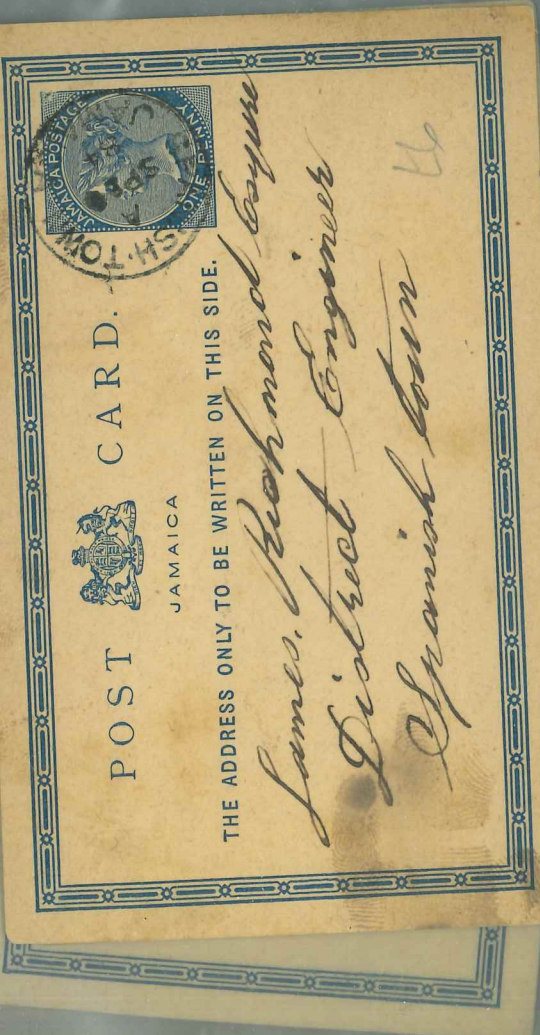 POST CARD.
JAMAICA
THE ADDRESS ONLY TO BE WRITTEN ON THIS SIDE.
JAMAICA POSTAGE
ONE PENNY
SH-TOW
A
SP
JAM
James. Richmond Esquire
District Engineer
Spanish town